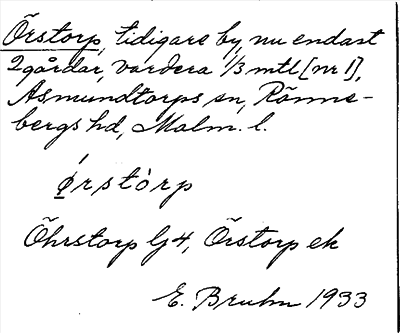 Örstorp, tidigare by, nu endast
2 gårdar, vardera 1/3 mtl [nr 1],
Asmundtorps sn, Rönne-
bergs hd, Malm. l.
Ørstòrp
Öhrstorp lj 4, Örstorp ek
E. Bruhn 1933